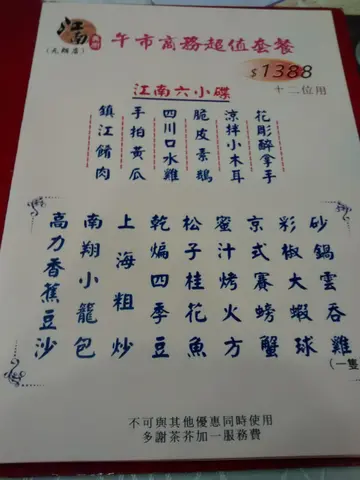 江南
(元朗店)
午市商務超值套餐
$1388
十二位用
江南六小碟
花彫醉拿手
涼拌小木耳
脆皮素鵝
四川口水雞
手拍黃瓜
鎮江餚肉
砂鍋雲吞雞
(一隻
彩椒大蝦球
京式賽螃蟹
蜜汁烤火方
松子桂花魚
乾煸四季豆
上海粗炒
南翔小籠包
高力香蕉豆沙
不可與其他優惠同時使用
多謝茶芥加一服務費